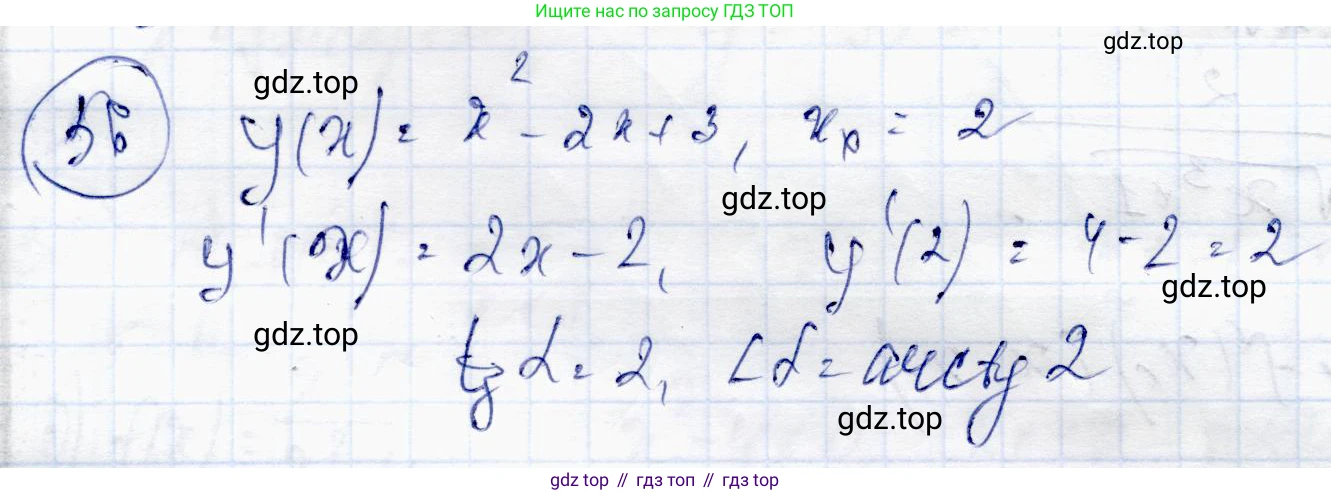 Ищите нас по запросу ГДЗ ТОП
gdz.top
gdz.top
56 y(x) = x² - 2x + 3, x₀ = 2
gdz.top
y'(x) = 2x - 2, y'(2) = 4 - 2 = 2
gdz.top
gdz.top
tg α = 2, ∠α = arctg 2
gdz.top
gdz.top // гдз топ // gdz top